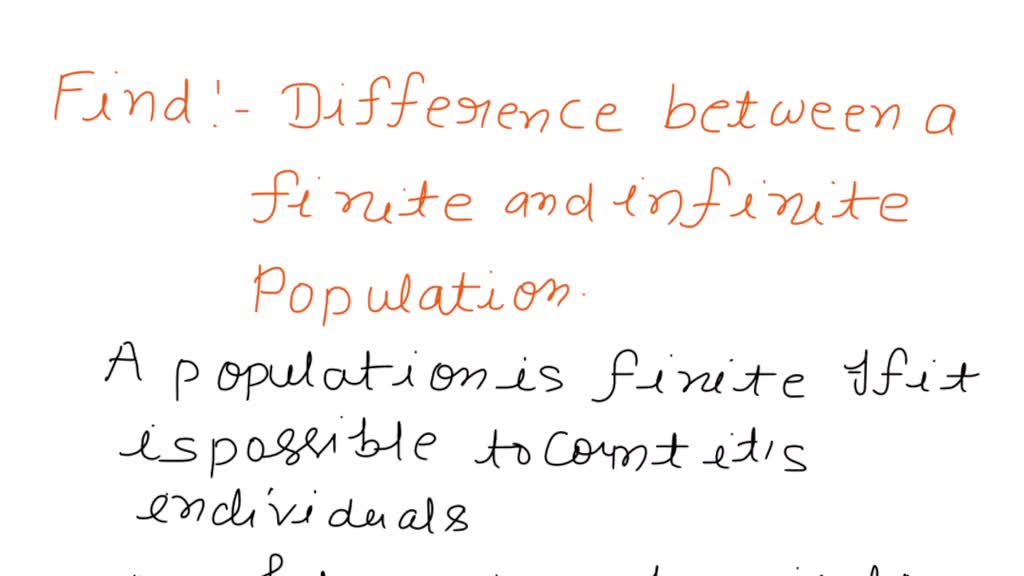 Find:- Difference between a
finite and infinite
Population.
A population is finite If it
is possible to count it's
individuals